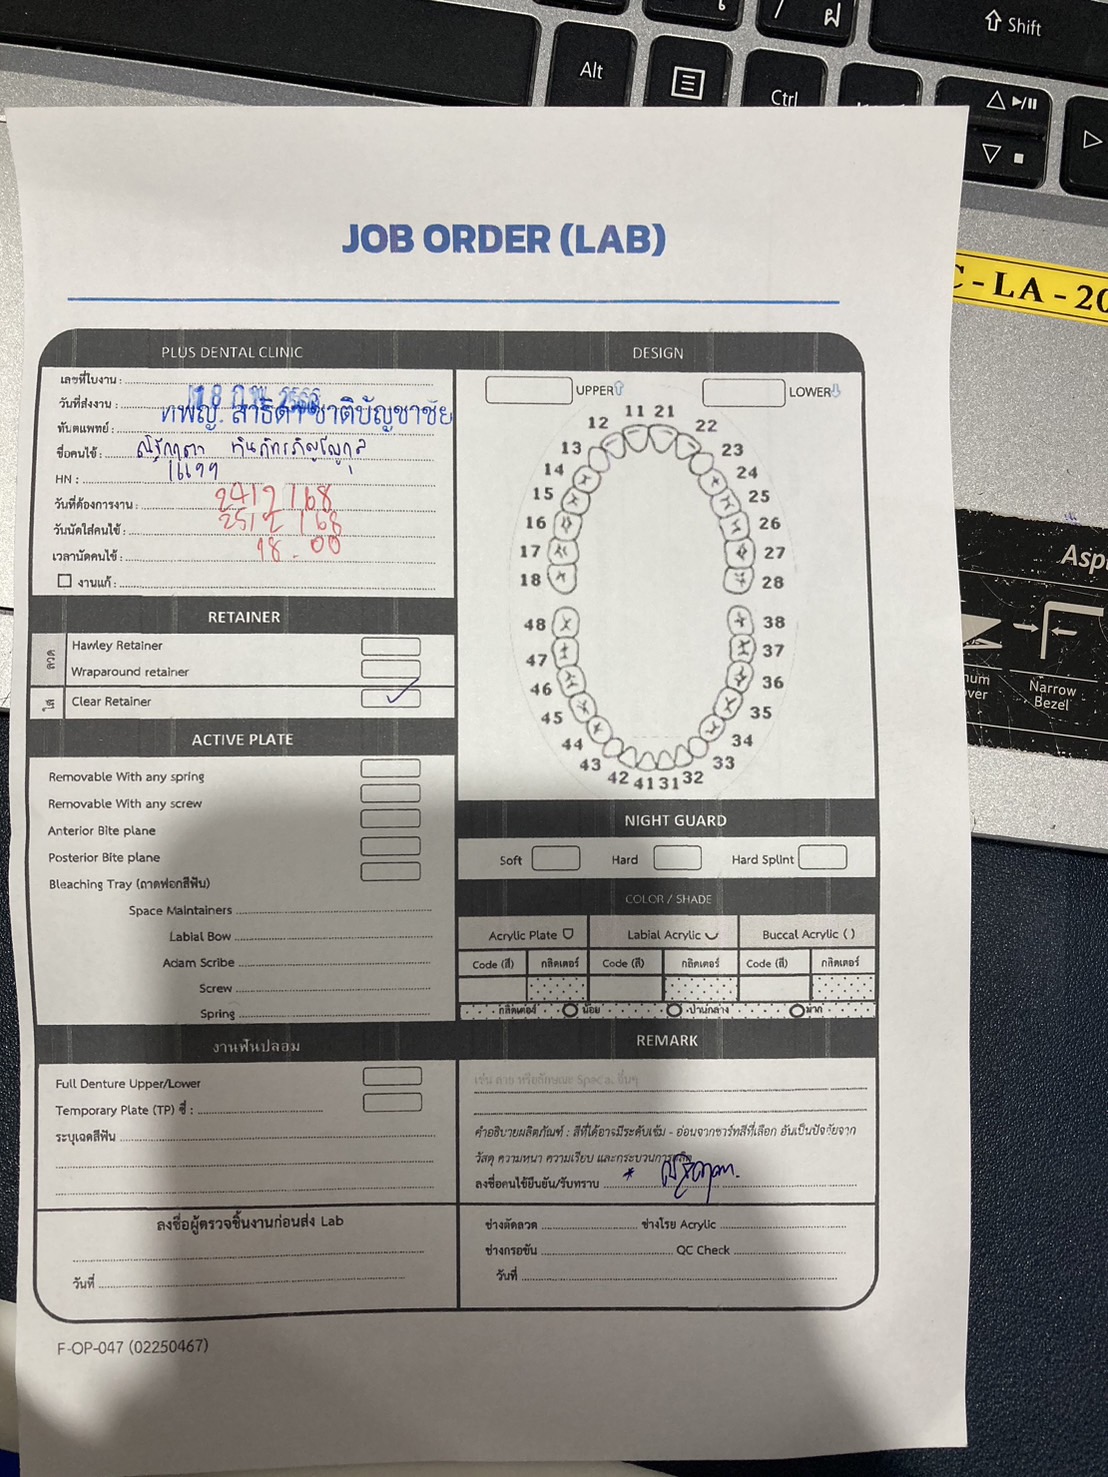 ฝ
Shift
Alt
Ctrl
C-LA-20
JOB ORDER (LAB)
PLUS DENTAL CLINIC
เลขที่ใบงาน :
วันที่ส่งงาน : 18 ก.พ. 2568
ทันตแพทย์ : ทพญ. สาธิดา ชาติบัญชาชัย
ชื่อคนไข้ :
HN :
วันที่ต้องการงาน : 24/2/68
วันนัดใส่คนไข้ : 25/2/68
เวลานัดคนไข้ : 18.00
งานแก้ :
RETAINER
ลวด
Hawley Retainer
Wraparound retainer
ใส
Clear Retainer
ACTIVE PLATE
Removable With any spring
Removable With any screw
Anterior Bite plane
Posterior Bite plane
Bleaching Tray (ถาดฟอกสีฟัน)
Space Maintainers
Labial Bow
Adam Scribe
Screw
Spring
งานฟันปลอม
Full Denture Upper/Lower
Temporary Plate (TP) ซี่ :
ระบุเฉดสีฟัน
ลงชื่อผู้ตรวจชิ้นงานก่อนส่ง Lab
วันที่
DESIGN
UPPER
LOWER
11 21
12 22
13 23
14 24
15 25
16 26
17 27
18 28
48 38
47 37
46 36
45 35
44 34
43 33
42 41 31 32
NIGHT GUARD
Soft Hard Hard Splint
COLOR / SHADE
Acrylic Plate Labial Acrylic Buccal Acrylic ( )
Code (สี) กลิตเตอร์ Code (สี) กลิตเตอร์ Code (สี) กลิตเตอร์
กลิตเตอร์ น้อย ปานกลาง มาก
REMARK
คำอธิบายผลิตภัณฑ์ : สีที่ได้อาจมีระดับเข้ม - อ่อนจากชาร์ทสีที่เลือก อันเป็นปัจจัยจาก
วัสดุ ความหนา ความเรียบ และกระบวนการผลิต
ลงชื่อคนไข้ยืนยัน/รับทราบ *
ช่างดัดลวด ช่างโรย Acrylic
ช่างกรอขัน QC Check
วันที่
F-OP-047 (02250467)
Narrow
Bezel